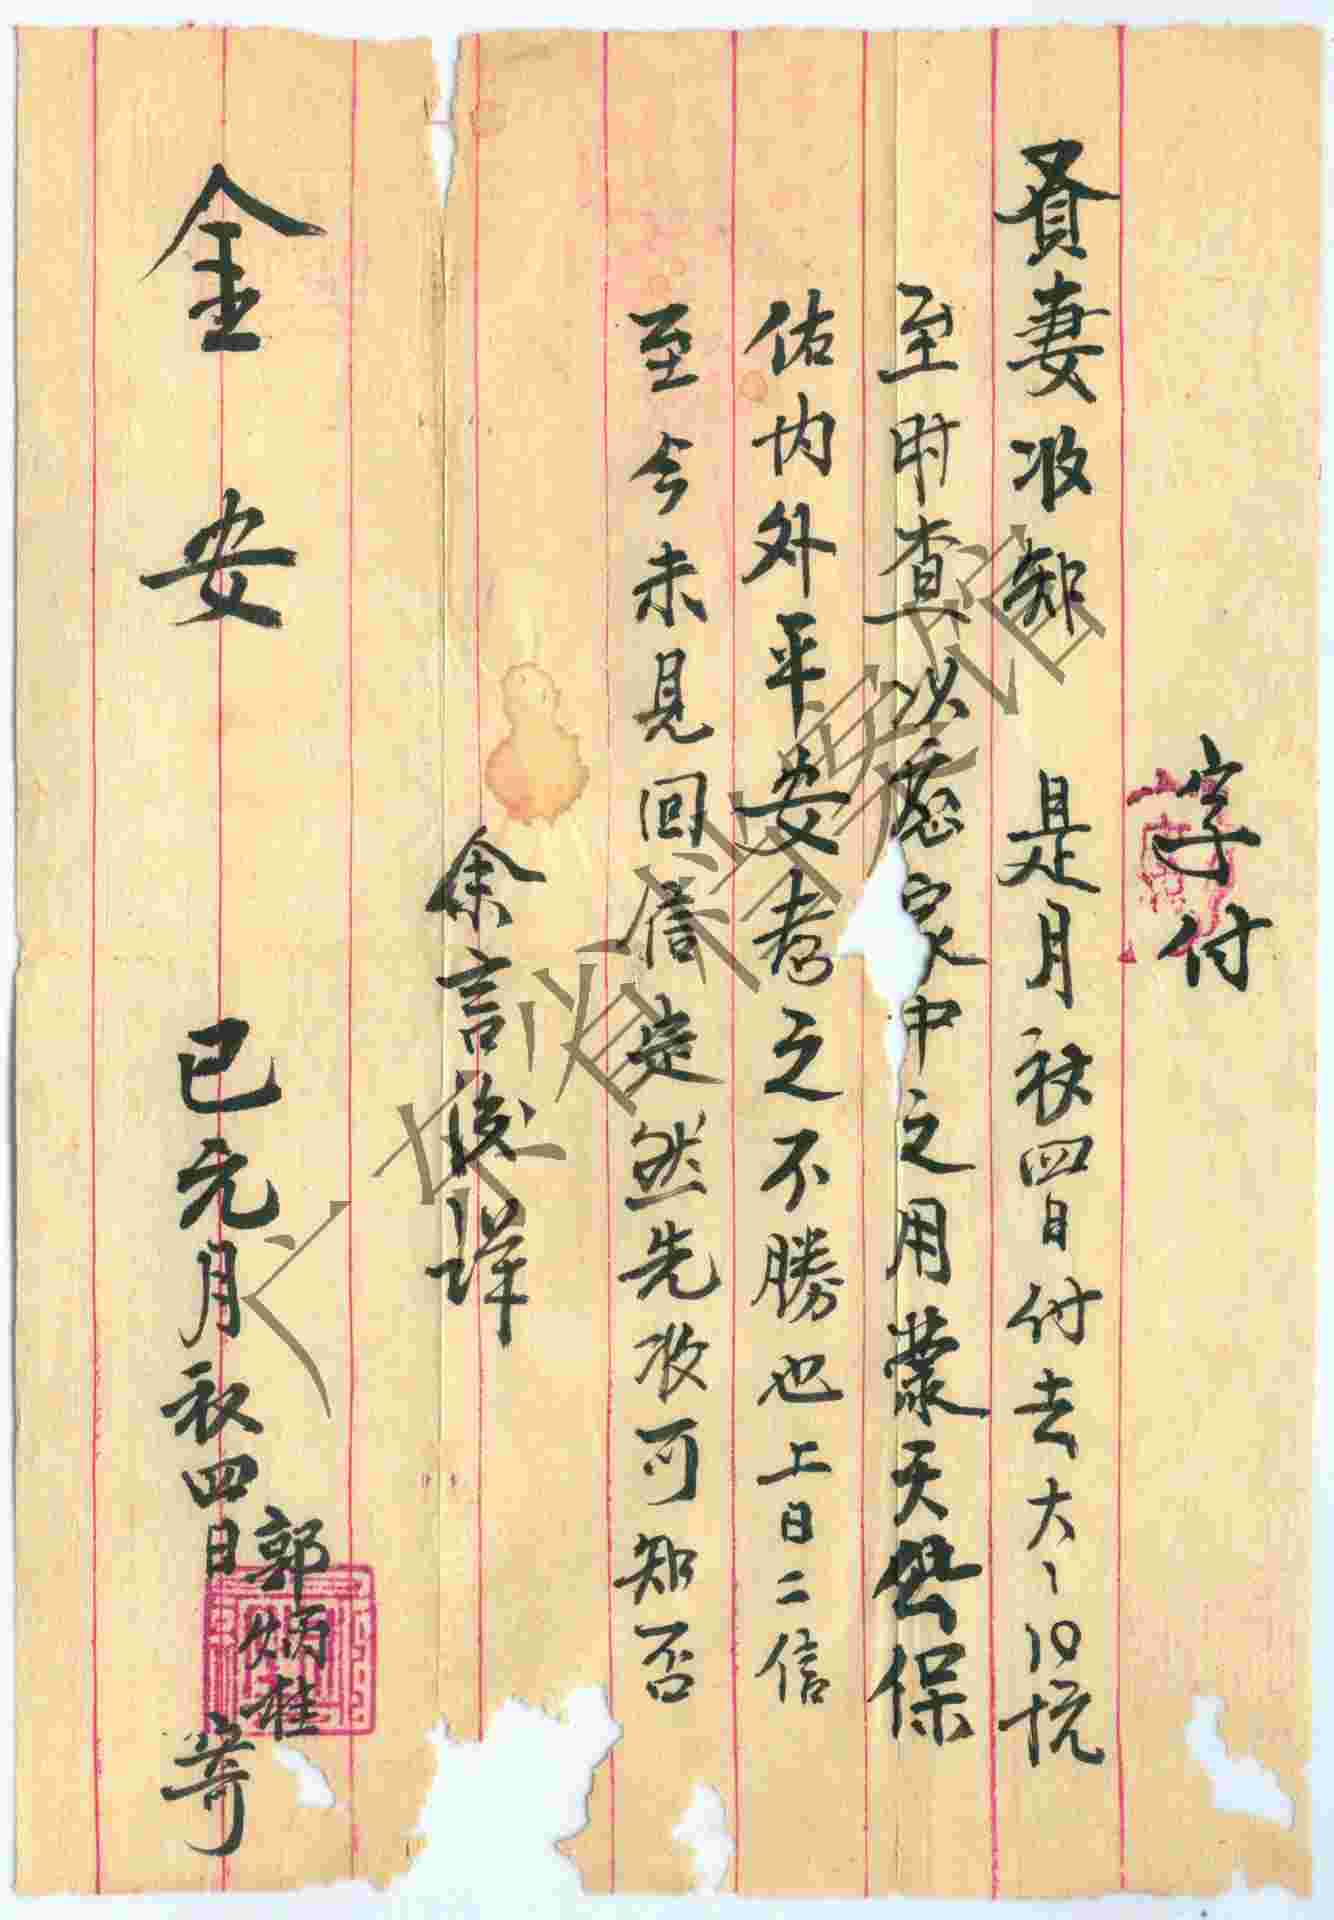 字付
賢妻收知 是月初四日付去大〻10忨
至时查收應家中之用蒙天公保
佑内外平安者之不勝也上日二信
至今未見回信定然先收可知否
余言後详
金安 已元月初四日郭炳 寄